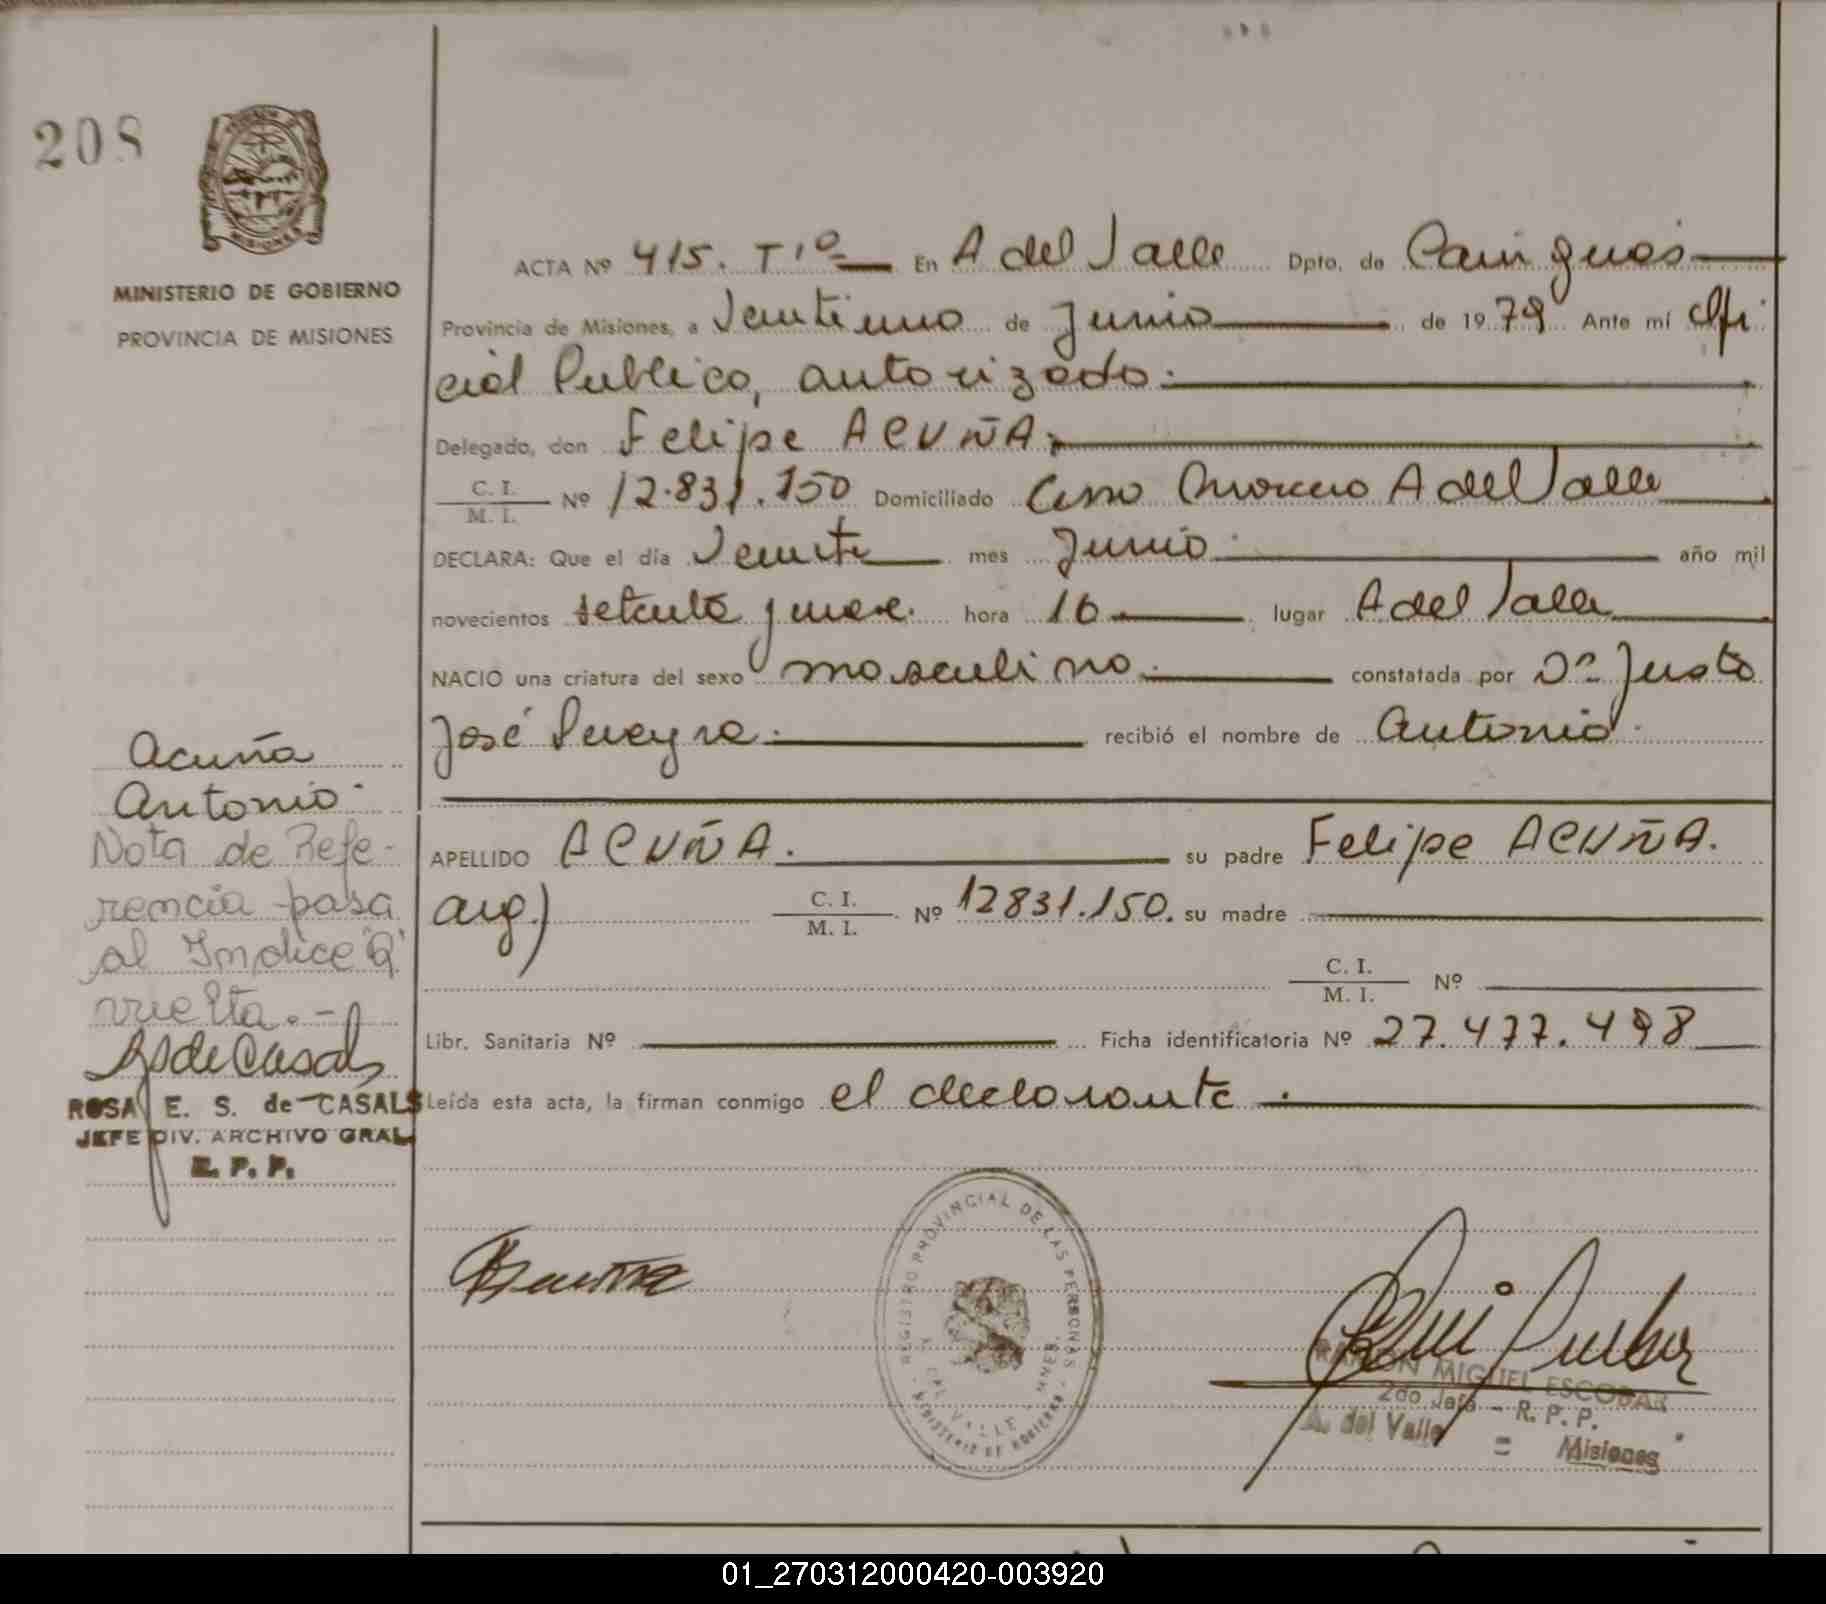 208
MINISTERIO DE GOBIERNO
PROVINCIA DE MISIONES
ACTA Nº 415. Tº1º En A del Valle Dpto. de Cainguás
Provincia de Misiones, a Veintiuno de Junio de 1979 Ante mí Ofi
cial Publico, autorizado.
Delegado, don Felipe ACUÑA.
C. I.
M. I. Nº 12.831.150 Domiciliado A del Valle
DECLARA: Que el día Veinte mes Junio año mil
novecientos setenta y nueve. hora 16 lugar A del Valle
NACIO una criatura del sexo masculino. constatada por Dr. Justo
José Pueyra. recibió el nombre de Antonio.
APELLIDO ACUÑA. su padre Felipe ACUÑA.
arg.) C. I.
M. I. Nº 12831.150. su madre
C. I.
M. I. Nº
Libr. Sanitaria Nº Ficha identificatoria Nº 27.477.498
Leída esta acta, la firman conmigo el declarante.
Acuña
Antonio.
Nota de Refe-
rencia pasa
al Indice "Q"
vuelta.-
RSdeCasals
ROSA E. S. de CASALS
JEFE DIV. ARCHIVO GRAL
R. P. P.
REGISTRO PROVINCIAL DE LAS PERSONAS
A. DEL VALLE - MNES.
MINISTERIO DE GOBIERNO
RAMON MIGUEL ESCOBAR
2do Jefe - R. P. P.
A. del Valle = Misiones
01_270312000420-003920